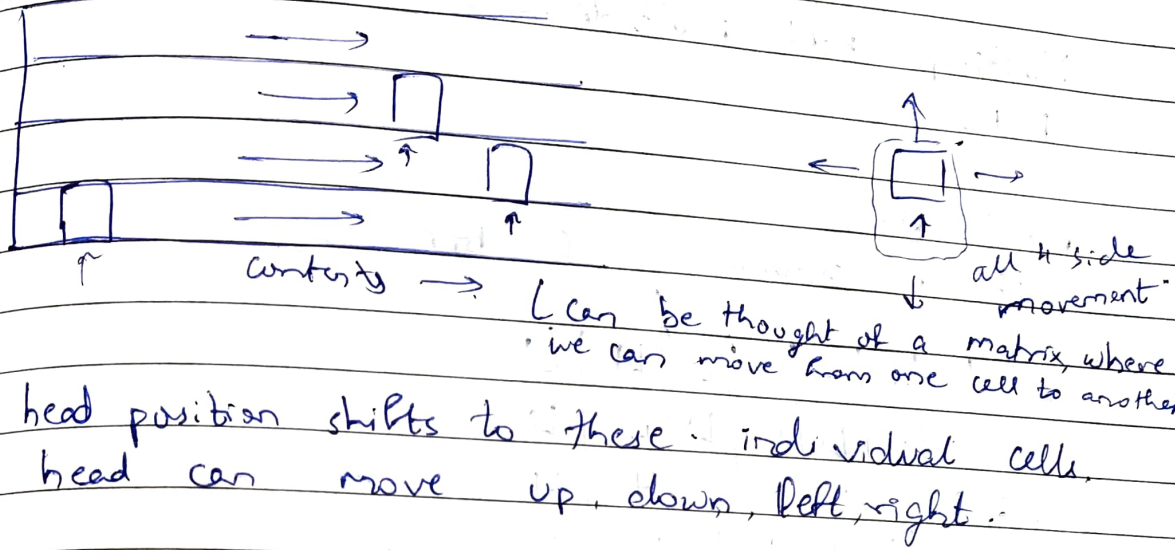 all 4 side
movement
contents → (can be thought of a matrix, where
we can move from one cell to another
head position shifts to these individual cells.
head can move up, down, left, right.